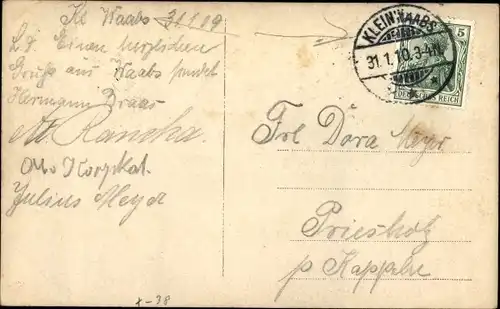 Kl Waabs 31 1 09
L. F. Einen herzlichen
Gruß aus Waabs sendet
Hermann Braas
Otto
Julius Meyer
Frl Dora Meyer
Priesholz
p Kappeln
KLEIN WAABS
31.1.10. 3-4N.
5
DEUTSCHES REICH
x-38